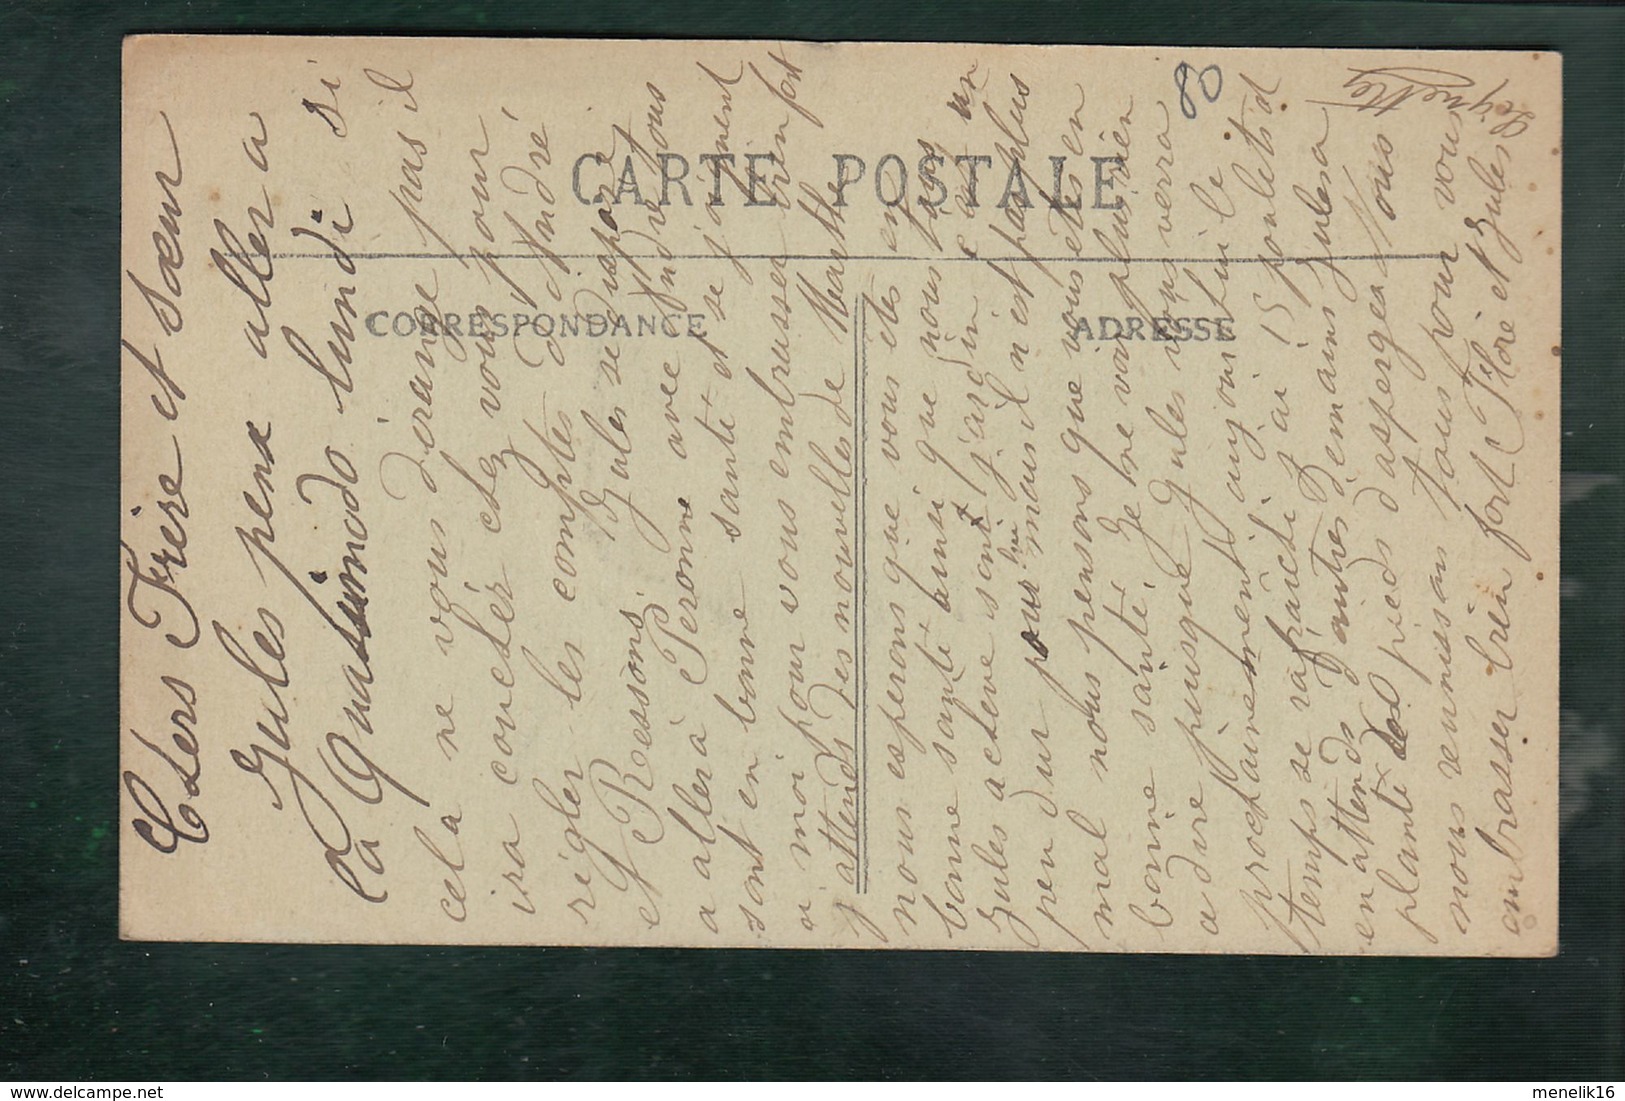 CARTE POSTALE
CORRESPONDANCE
ADRESSE
80
Chers Frère et Sœur
Jules pense aller a
la Quasimodo lundi si
cela ne vous dérange pas il
ira coucher chez vous pour
régler les comptes d'André
et Ressons. Jules se dispose
a aller à Peronne avec André tous
sont en bonne santé et se joignent
a moi pour vous embrasser bien fort
j attends des nouvelles de Marthe
nous esperons que vous etes en
bonne santé ainsi que nous tous
Jules acheve son jardin c est un
peu dur pour lui mais il n est pas plus
mal nous pensons que vous êtes en
bonne santé. Je ne vois plus rien
a dire puisque Jules vous verra
prochainement aujourd'hui le
temps se rafraichi j ai 15 poulets d
en attends d'autres demains Jules a
planté des pieds d'asperges Nous
nous reunissons tous pour vous
embrasser bien fort Flore et Jules